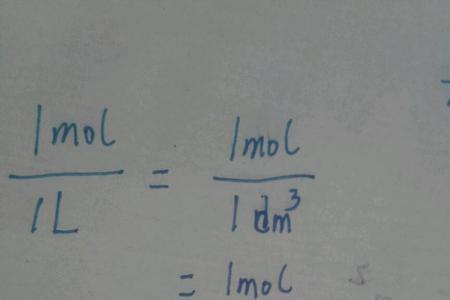 1mol/1L = 1mol/1dm³
= 1mol